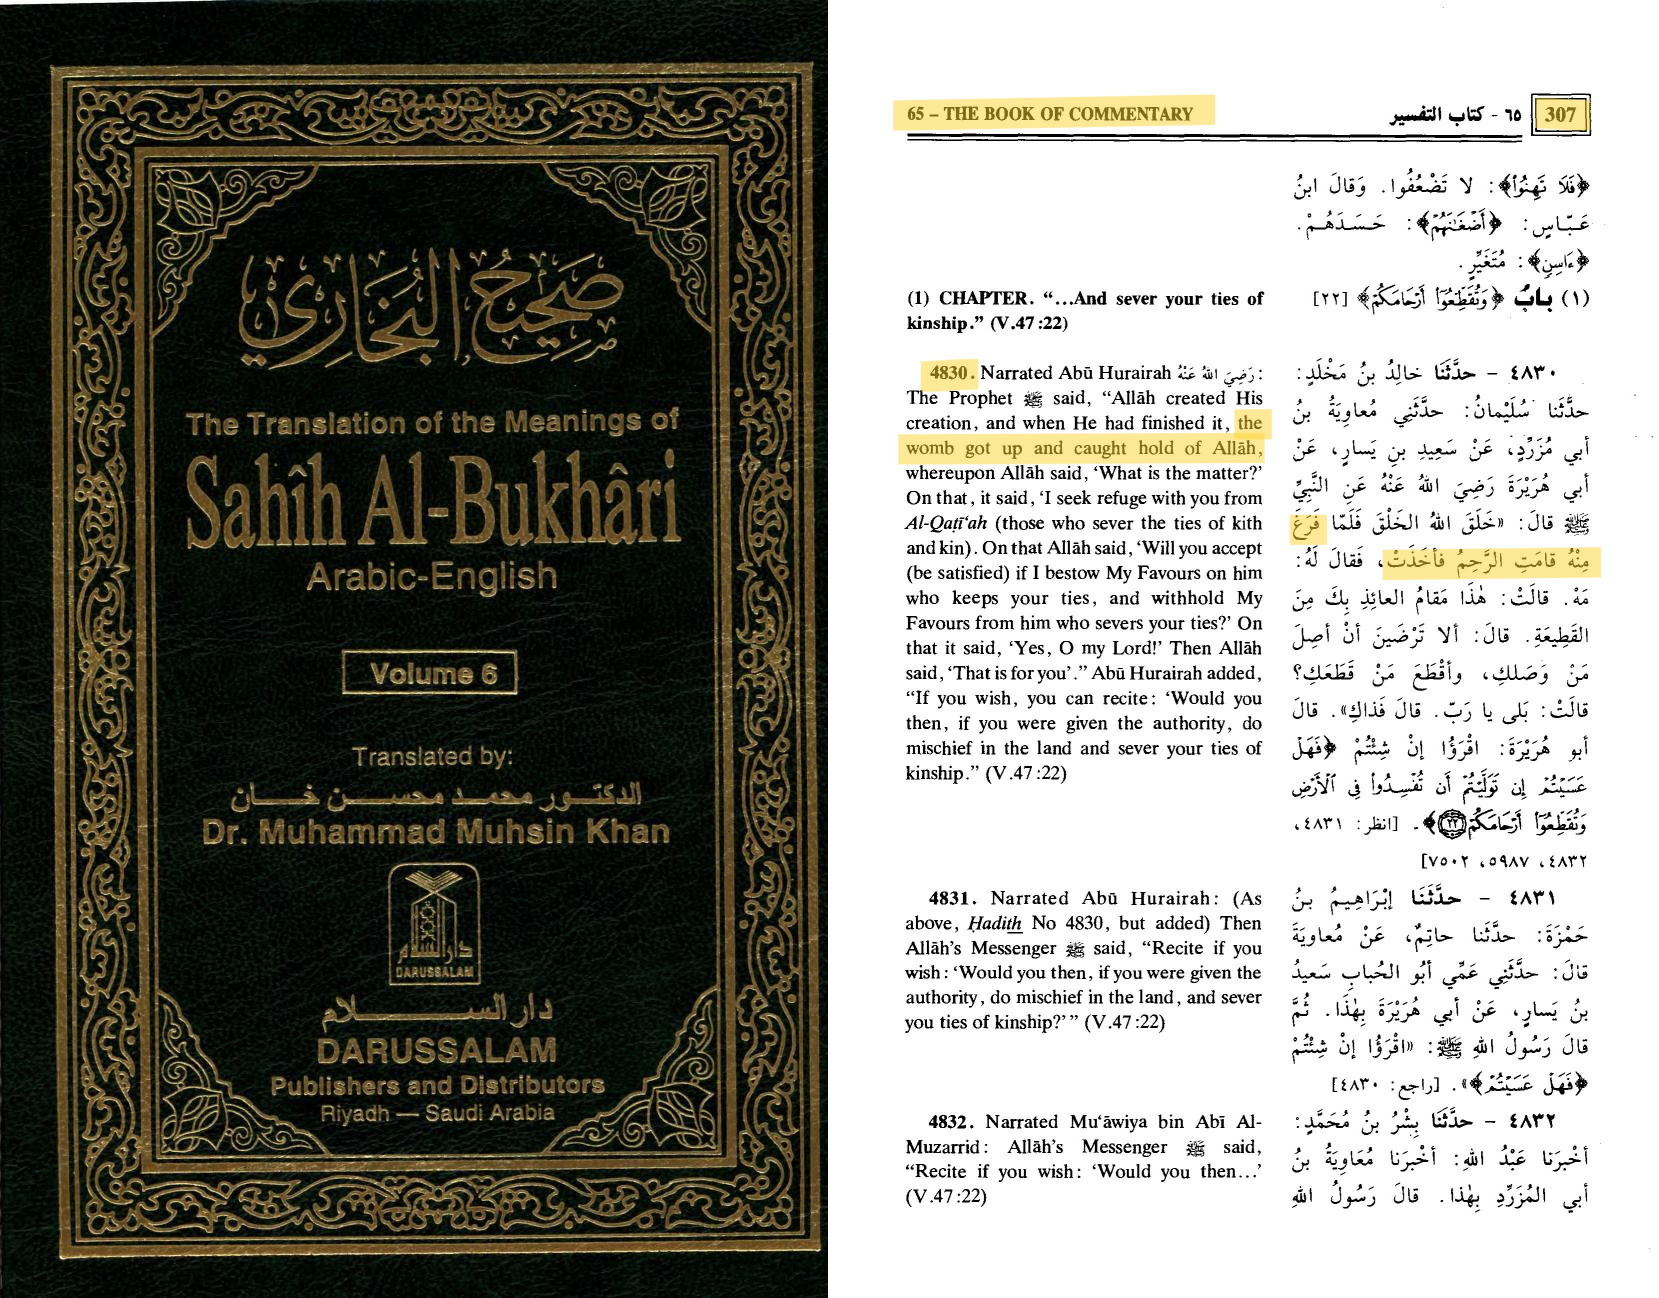 صحيح البخاري
The Translation of the Meanings of
Sahîh Al-Bukhâri
Arabic-English
Volume 6
Translated by:
الدكتور محمد محسن خان
Dr. Muhammad Muhsin Khan
دار السلام
DARUSSALAM
دار السلام
DARUSSALAM
Publishers and Distributors
Riyadh — Saudi Arabia
65 – THE BOOK OF COMMENTARY
٦٥ - كتاب التفسير
307
﴿فَلَا تَهِنُوا﴾: لا تَضْعُفُوا. وَقالَ ابنُ
عَبّاسٍ: ﴿أَضْغَانَهُمْ﴾: حَسَدَهُمْ.
﴿ءَاسِنٍ﴾: مُتَغَيِّرٍ.
(1) CHAPTER. “...And sever your ties of
kinship.” (V.47:22)
(١) بابُ ﴿وَتُقَطِّعُوٓا أَرْحَامَكُمْ﴾ [٢٢]
4830. Narrated Abū Hurairah رَضِيَ اللهُ عَنْهُ:
The Prophet ﷺ said, “Allāh created His
creation, and when He had finished it, the
womb got up and caught hold of Allāh,
whereupon Allāh said, ‘What is the matter?’
On that, it said, ‘I seek refuge with you from
Al-Qaṭī‘ah (those who sever the ties of kith
and kin). On that Allāh said, ‘Will you accept
(be satisfied) if I bestow My Favours on him
who keeps your ties, and withhold My
Favours from him who severs your ties?’ On
that it said, ‘Yes, O my Lord!’ Then Allāh
said, ‘That is for you’.” Abū Hurairah added,
“If you wish, you can recite: ‘Would you
then, if you were given the authority, do
mischief in the land and sever your ties of
kinship.” (V.47:22)
٤٨٣٠ - حدَّثَنا خالِدُ بنُ مَخْلَدٍ:
حدَّثَنا سُلَيْمانُ: حدَّثَنِي مُعاوِيَةُ بنُ
أبي مُزَرِّدٍ، عَنْ سَعِيدِ بنِ يَسارٍ، عَنْ
أبي هُرَيْرَةَ رَضِيَ اللهُ عَنْهُ عَنِ النَّبِيِّ
ﷺ قالَ: «خَلَقَ اللهُ الخَلْقَ فَلَمّا فَرَغَ
مِنْهُ قامَتِ الرَّحِمُ فأخَذَتْ، فَقالَ لَهُ:
مَهْ. قالَتْ: هٰذَا مَقامُ العائِذِ بِكَ مِنَ
القَطِيعَةِ. قالَ: ألا تَرْضَينَ أنْ أصِلَ
مَنْ وَصَلكِ، وأقْطَعَ مَنْ قَطَعَكِ؟
قالَتْ: بَلى يا رَبِّ. قالَ فَذاكِ». قالَ
أبو هُرَيْرَةَ: اقْرَؤُا إنْ شِئْتُمْ ﴿فَهَلْ
عَسَيْتُمْ إِن تَوَلَّيْتُمْ أَن تُفْسِدُوا فِي الْأَرْضِ
وَتُقَطِّعُوٓا أَرْحَامَكُمْ ٢٢﴾. [انظر: ٤٨٣١،
٤٨٣٢، ٥٩٨٧، ٧٥٠٢]
4831. Narrated Abū Hurairah: (As
above, Ḥadith No 4830, but added) Then
Allāh’s Messenger ﷺ said, “Recite if you
wish: ‘Would you then, if you were given the
authority, do mischief in the land, and sever
you ties of kinship?’” (V.47:22)
٤٨٣١ - حدَّثَنَا إبْرَاهِيمُ بنُ
حَمْزَةَ: حدَّثَنا حاتِمٌ، عَنْ مُعاوِيَةَ
قالَ: حدَّثَنِي عَمِّي أبُو الحُبابِ سَعيدُ
بنُ يَسارٍ، عَنْ أبي هُرَيْرَةَ بِهٰذَا. ثُمَّ
قالَ رَسُولُ اللهِ ﷺ: «اقْرَؤُا إنْ شِئْتُمْ
﴿فَهَلْ عَسَيْتُمْ﴾». [راجع: ٤٨٣٠]
4832. Narrated Mu‘āwiya bin Abī Al-
Muzarrid: Allāh’s Messenger ﷺ said,
“Recite if you wish: ‘Would you then...’
(V.47:22)
٤٨٣٢ - حدَّثَنا بِشْرُ بنُ مُحَمَّدٍ:
أخْبَرَنا عَبْدُ اللهِ: أخْبَرَنا مُعَاوِيَةُ بنُ
أبي المُزَرِّدِ بِهٰذا. قالَ رَسُولُ اللهِ